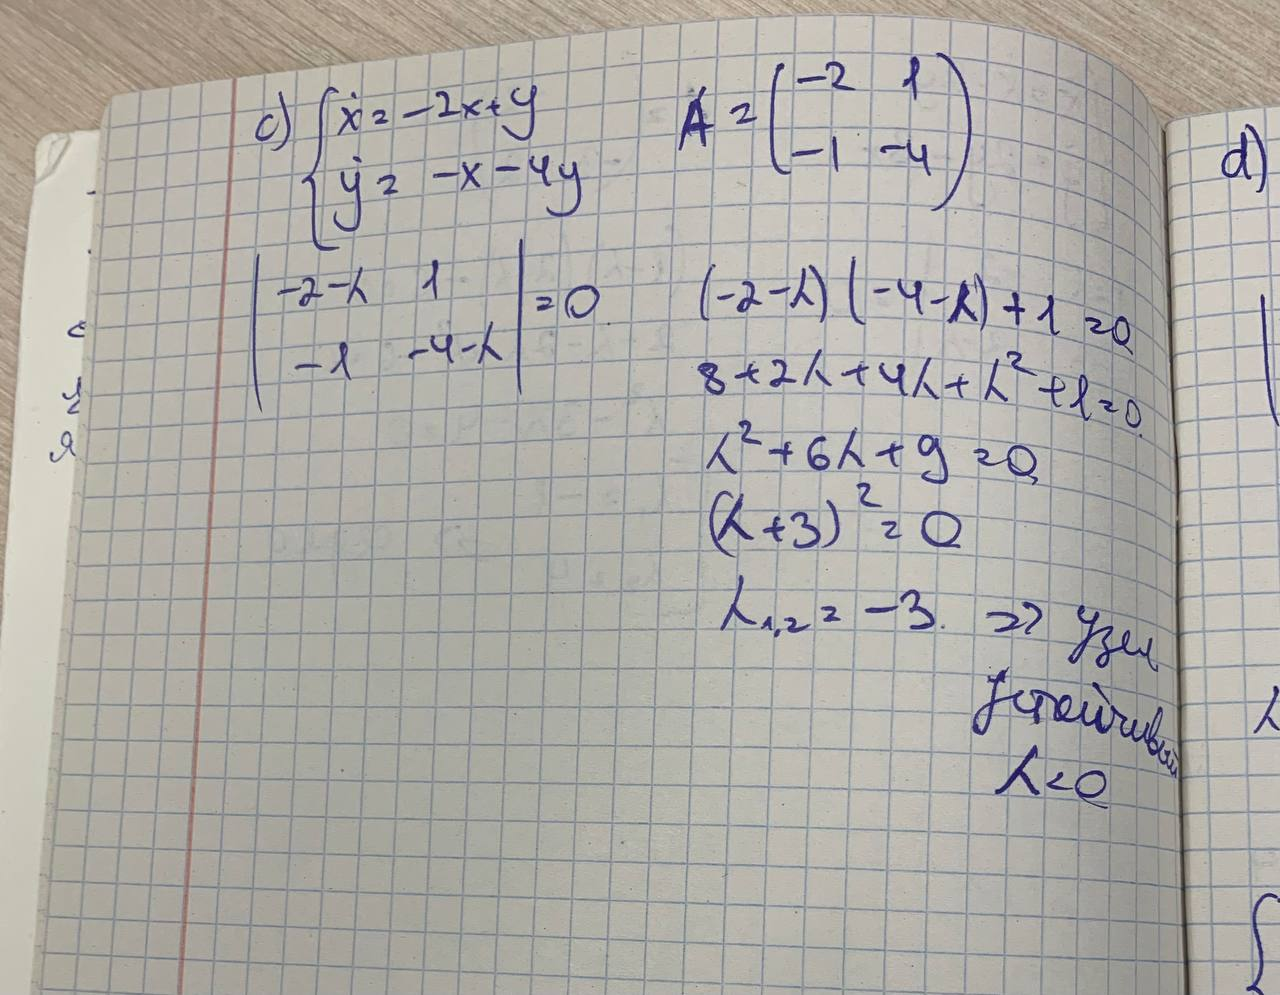 c) { ẋ = -2x+y
ẏ = -x-4y
A = ( -2 1
-1 -4 )
| -2-λ 1
-1 -4-λ | = 0
(-2-λ)(-4-λ)+1=0
8+2λ+4λ+λ²+1=0
λ²+6λ+9=0
(λ+3)²=0
λ₁,₂ = -3. => узел
устойчивый
λ<0
d)